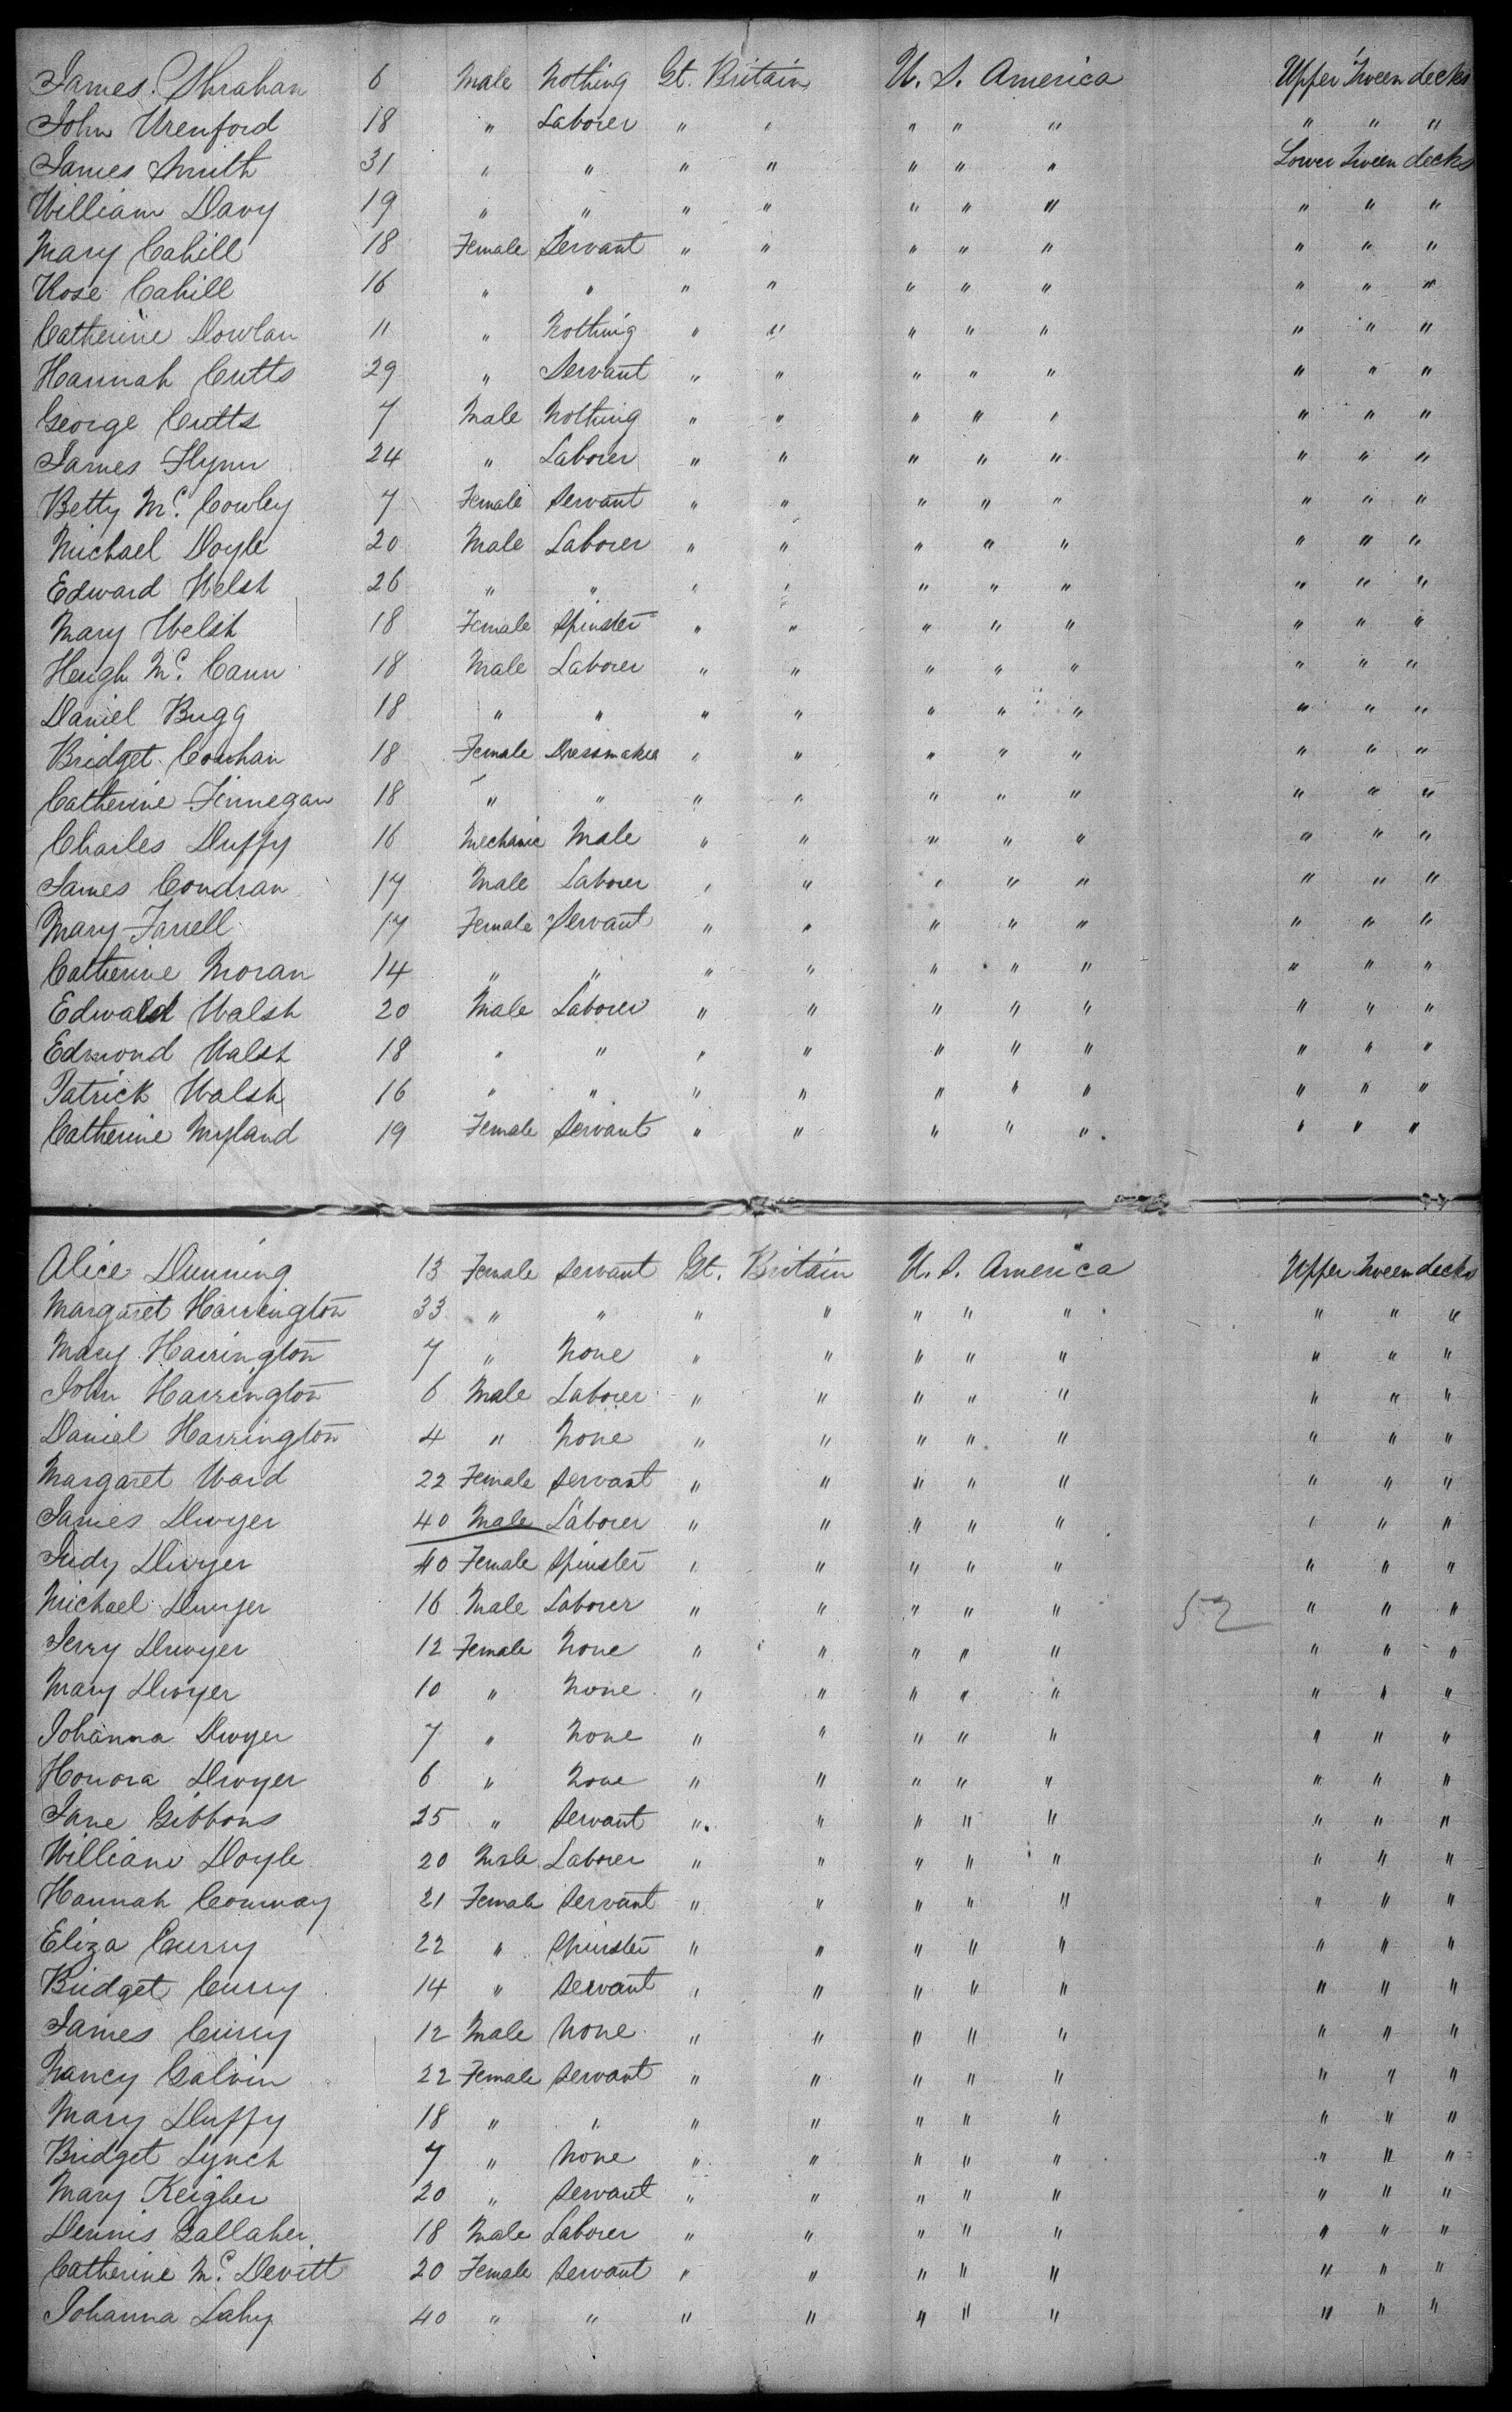 James Shrahan 6 Male Nothing Gt. Britain U. S. America Upper Tween decks
John Wrenford 18 " Laborer " " " " " " " "
James Smith 31 " " " " " " " Lower Tween decks
William Davy 19 " " " " " " " " " "
Mary Cahill 18 Female Servant " " " " " " " "
Rose Cahill 16 " " " " " " " " " "
Catherine Dowlan 11 " Nothing " " " " " " " "
Hannah Cutts 29 " Servant " " " " " " " "
George Cutts 7 Male Nothing " " " " " " " "
James Flynn 24 " Laborer " " " " " " " "
Betty Mc. Cowley 7 Female Servant " " " " " " " "
Michael Doyle 20 Male Laborer " " " " " " " "
Edward Welsh 26 " " " " " " " " " "
Mary Welsh 18 Female Spinster " " " " " " " "
Heugh Mc. Cann 18 Male Laborer " " " " " " " "
Daniel Bugg 18 " " " " " " " " " "
Bridget 18 Female Dressmaker " " " " " " " "
Catherine Finnegan 18 " " " " " " " " " "
Charles Duffy 16 Mechanic Male " " " " " " " "
James Condran 17 Male Laborer " " " " " " " "
Mary Farrell 17 Female Servant " " " " " " " "
Catherine Moran 14 " " " " " " " " " "
Edwald Walsh 20 Male Laborer " " " " " " " "
Edmond Walsh 18 " " " " " " " " " "
Patrick Walsh 16 " " " " " " " " " "
Catherine Myland 19 Female Servant " " " " " " " "
Alice Dunning 13 Female Servant Gt. Britain U. S. America Upper Tween decks
Margaret Harrington 33 " " " " " " " " " "
Mary Harrington 7 " None " " " " " " " "
John Harrington 6 Male Laborer " " " " " " " "
Daniel Harrington 4 " None " " " " " " " "
Margaret Ward 22 Female Servant " " " " " " " "
James Dwyer 40 Male Laborer " " " " " " " "
Judy Dwyer 40 Female Spinster " " " " " " " "
Michael Dwyer 16 Male Laborer " " " " " 52 " " "
Jerry Dwyer 12 Female None " " " " " " " "
Mary Dwyer 10 " None " " " " " " " "
Johanna Dwyer 7 " None " " " " " " " "
Honora Dwyer 6 " None " " " " " " " "
Jane Gibbons 25 " Servant " " " " " " " "
William Doyle 20 Male Laborer " " " " " " " "
Hannah Conway 21 Female Servant " " " " " " " "
Eliza Curry 22 " Spinster " " " " " " " "
Bridget Curry 14 " Servant " " " " " " " "
James Curry 12 Male None " " " " " " " "
Nancy Galvin 22 Female Servant " " " " " " " "
Mary Duffy 18 " " " " " " " " " "
Bridget Lynch 7 " None " " " " " " " "
Mary Keigher 20 " Servant " " " " " " " "
Dennis Gallaher 18 Male Laborer " " " " " " " "
Catherine Mc. Devitt 20 Female Servant " " " " " " " "
Johanna Lahy 40 " " " " " " " " " "